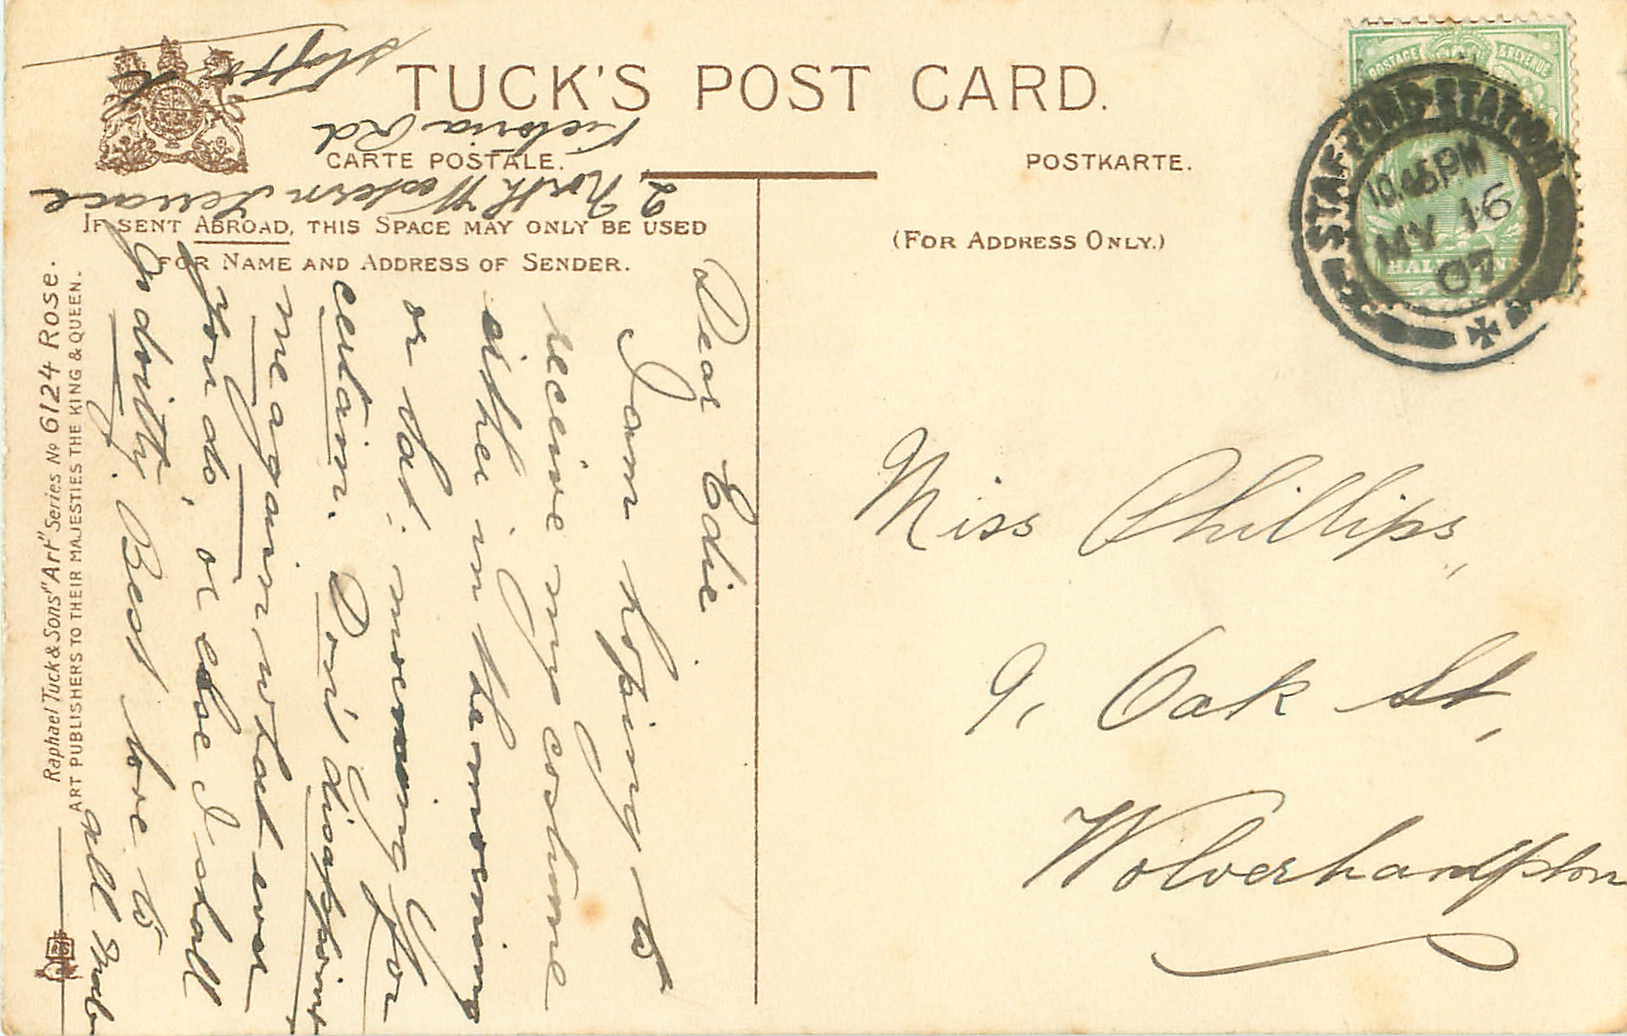 TUCK'S POST CARD.
CARTE POSTALE.
POSTKARTE.
IF SENT ABROAD, THIS SPACE MAY ONLY BE USED
FOR NAME AND ADDRESS OF SENDER.
(FOR ADDRESS ONLY.)
POSTAGE & REVENUE
STAFFORD STATION
10.45PM
MY 16
07
2 North Western Terrace
Victoria Rd
Dear Edie
I am hoping to
receive my costume
either in the morning
or Sat. morning for
certain. Don't disappoint
me again what ever
you do, or else I shall
go dotty. Best love to
all Mab
Miss Phillips,
9, Oak St,
Wolverhampton
Raphael Tuck & Sons' "Art" Series No 6124 Rose.
ART PUBLISHERS TO THEIR MAJESTIES THE KING & QUEEN.